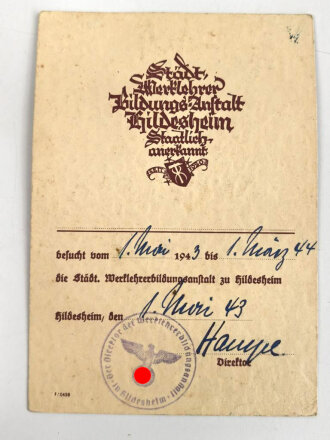 Städt.
Werklehrer
Bildungs-Anstalt
Hildesheim
Staatlich-
anerkannt
besucht vom 1. Mai 1943 bis 1. März 44
die Städt. Werklehrerbildungsanstalt zu Hildesheim
Hildesheim, den 1. Mai 43
Hampe
Direktor
Der Direktor der Werklehrerbildungsanstalt
in Hildesheim